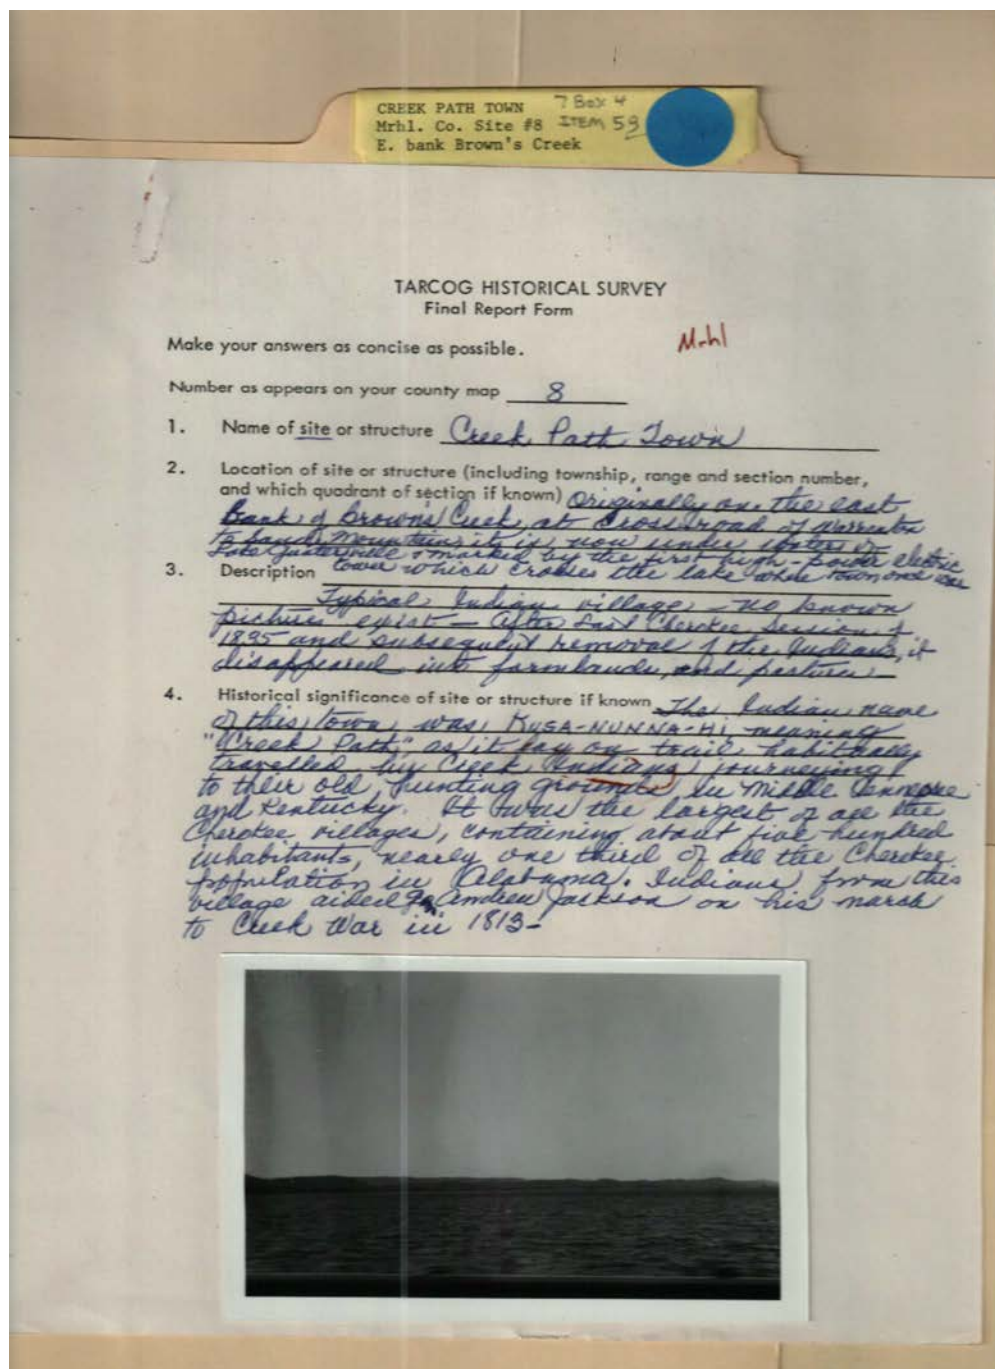 CREEK PATH TOWN 7 Box 4
Mrhl. Co. Site #8 ITEM 59
E. bank Brown's Creek
TARCOG HISTORICAL SURVEY
Final Report Form
Make your answers as concise as possible. Mrhl
Number as appears on your county map 8
1. Name of site or structure Creek Path Town
2. Location of site or structure (including township, range and section number,
and which quadrant of section if known) Originally on the east
Bank of Brown's Creek, at Crossroad of Warrenton
to Sand Mountain; it is now under waters of
Lake Guntersville & marked by the first high-power electric
tower which crosses the lake where town once was
3. Description
Typical Indian village - no known
pictures exist - After Last Cherokee Session of
1835 and subsequent removal of the Indians, it
disappeared into farmlands, and pastures -
4. Historical significance of site or structure if known The Indian name
of this town was KUSA-NUNNA-HI, meaning
"Creek Path", as it lay on trail habitually
travelled by Creek Indians journeying
to their old hunting grounds in Middle Tennessee
and Kentucky. It was the largest of all the
Cherokee villages, containing about five hundred
inhabitants, nearly one third of all the Cherokee
population in Alabama. Indians from this
village aided Andrew Jackson on his march
to Creek War in 1813-